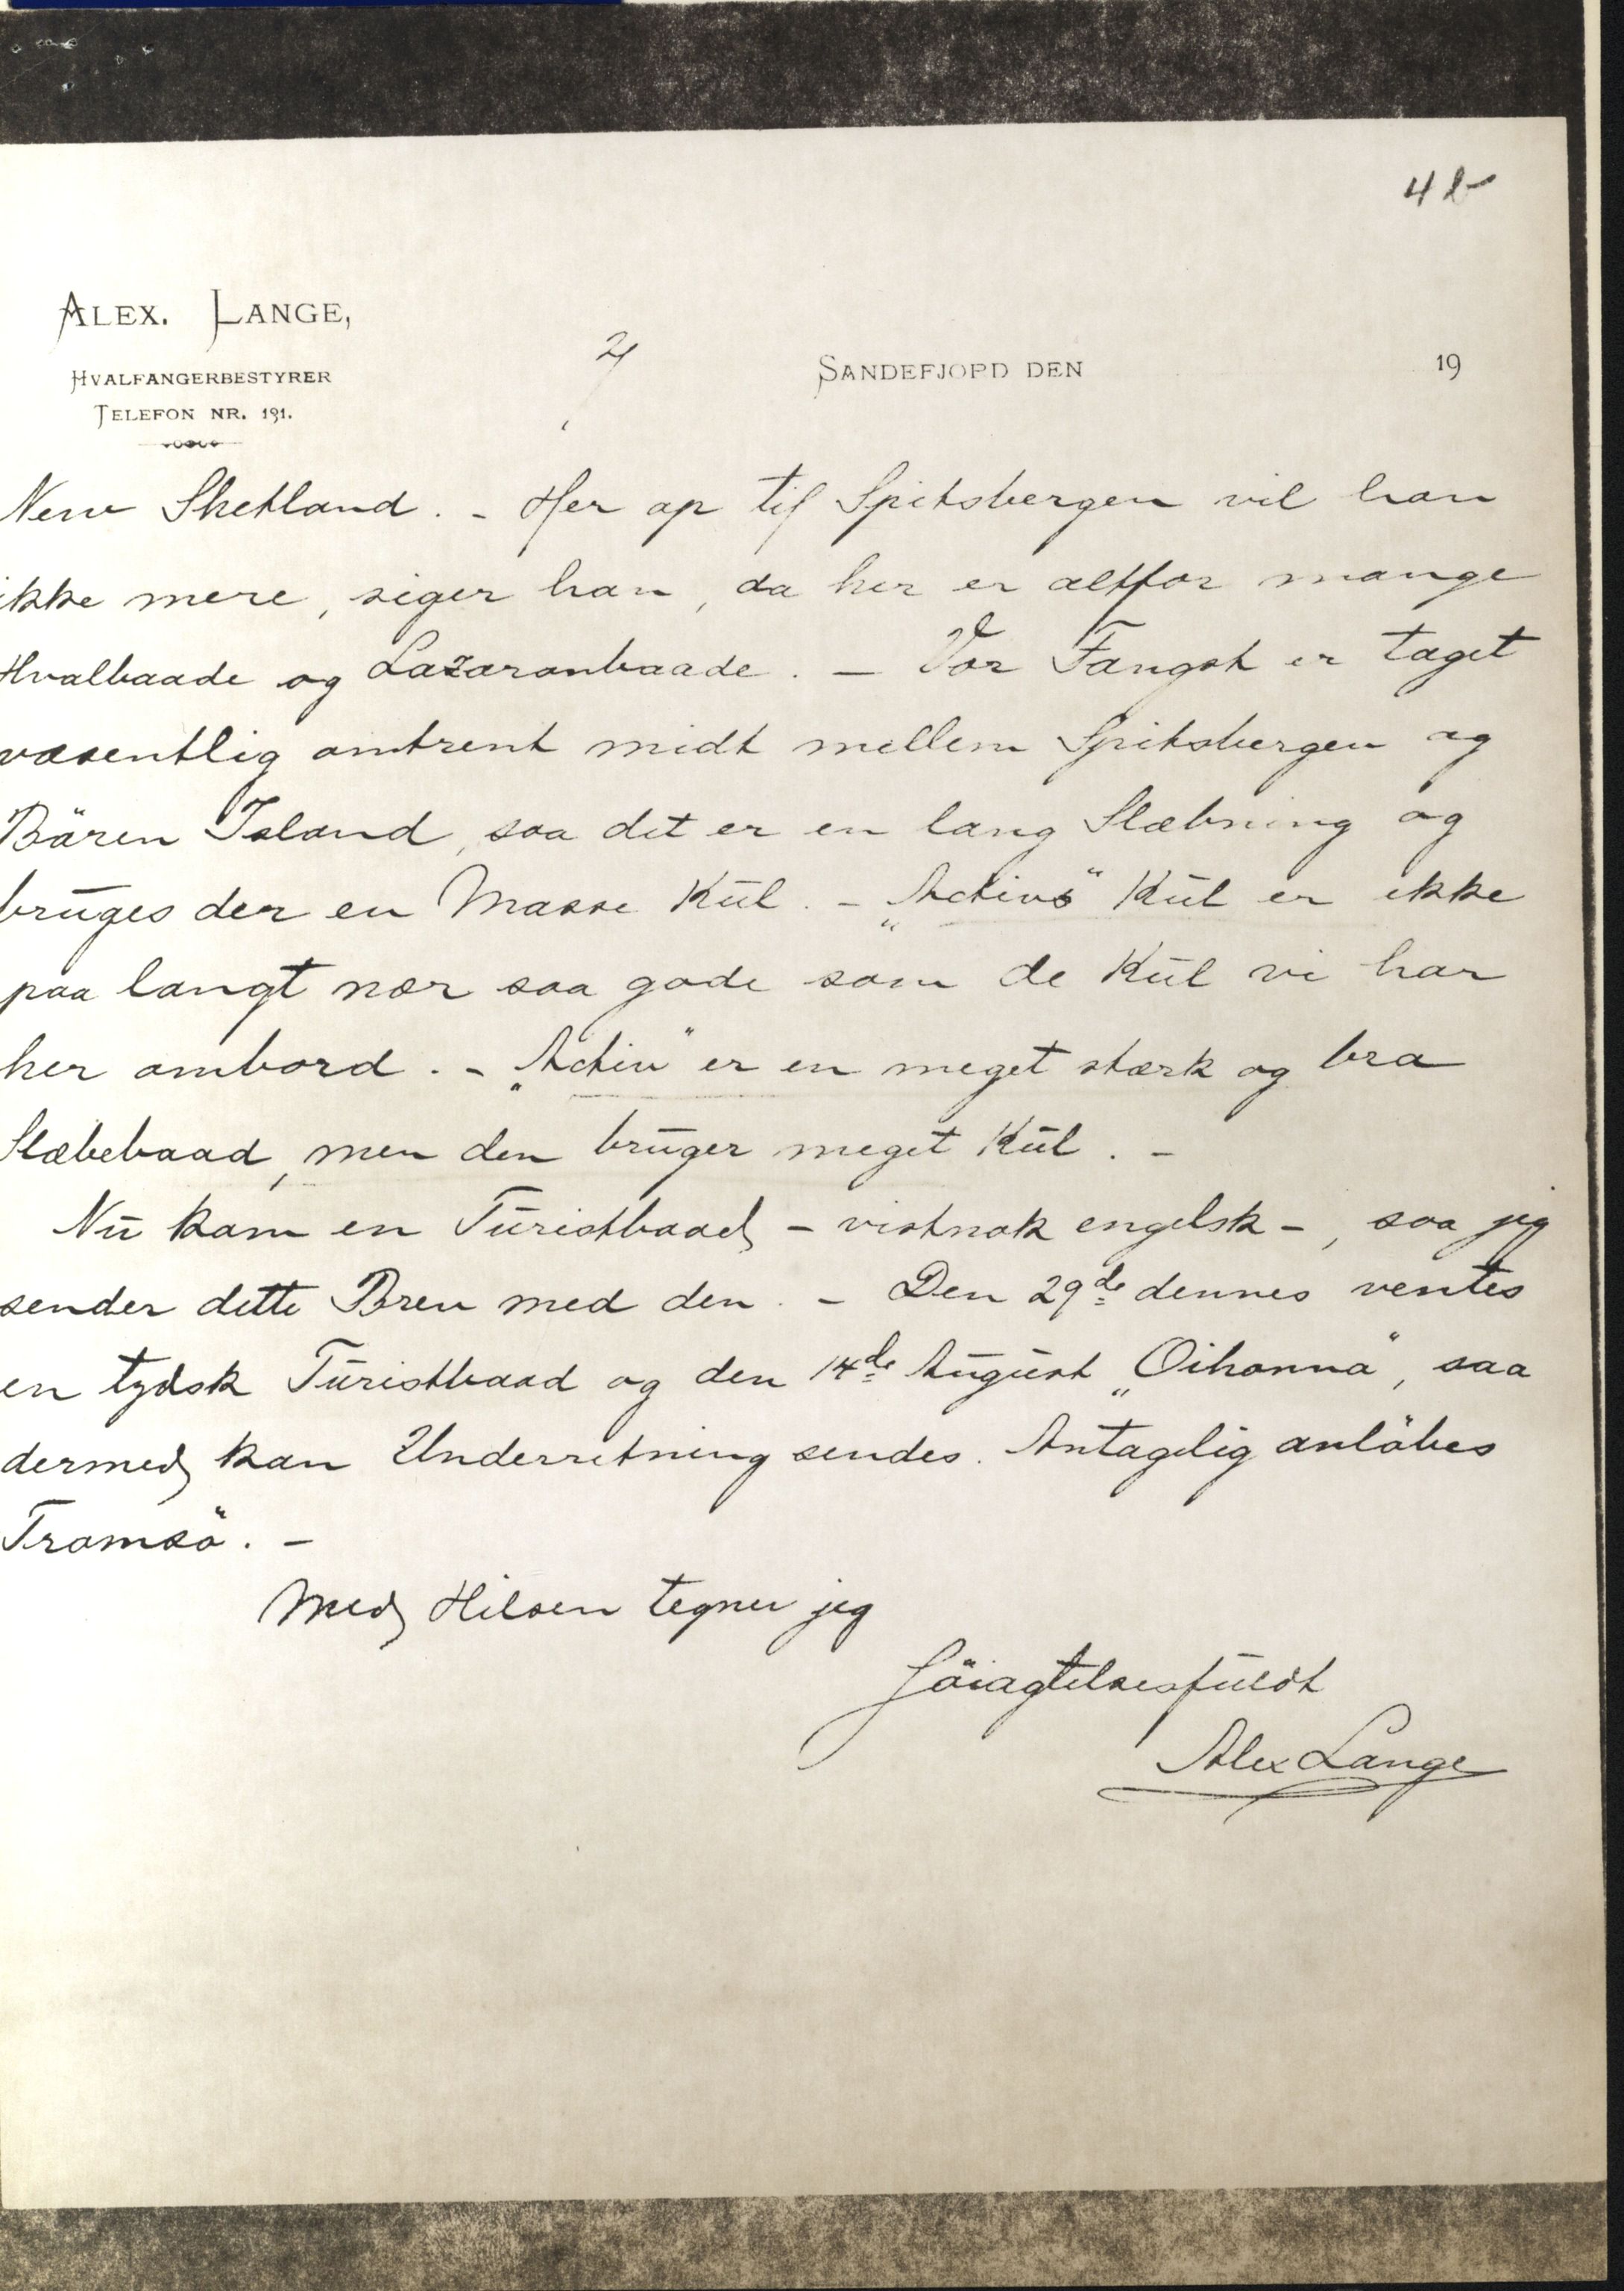 4 b
ALEX. LANGE,
HVALFANGERBESTYRER
TELEFON NR. 191.
2/
SANDEFJORD DEN 19
New Shetland. - Her op til Spitsbergen vil han
ikke mere, siger han, da her er altfor mange
Hvalbaade og Lazaronbaade. - Vor Fangst er taget
væsentlig omtrent midt mellem Spitsbergen og
Bären Island, saa det er en lang Slæbning og
bruges der en Masse Kul. - „Activs" Kul er ikke
paa langt nær saa gode som de Kul vi har
her ombord. - „Activ" er en meget stærk og bra
Slæbebaad, men den bruger meget Kul. -
Nu kom en Turistbaad - vistnok engelsk -, saa jeg
sender dette Brev med den. - Den 29de dennes ventes
en tydsk Turistbaad og den 14de August „Oihonna", saa
dermed kan Underretning sendes. Antagelig anlöbes
Tromsö. -
Med Hilsen tegner jeg
Höiagtelsesfuldt
Alex Lange